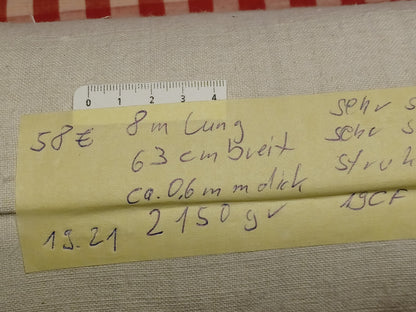 0 1 2 3 4
58€
8 m lung
63 cm breit
ca. 0,6 m m dick
2150 gr
19.21
sehr s
sehr s
struk
19CF